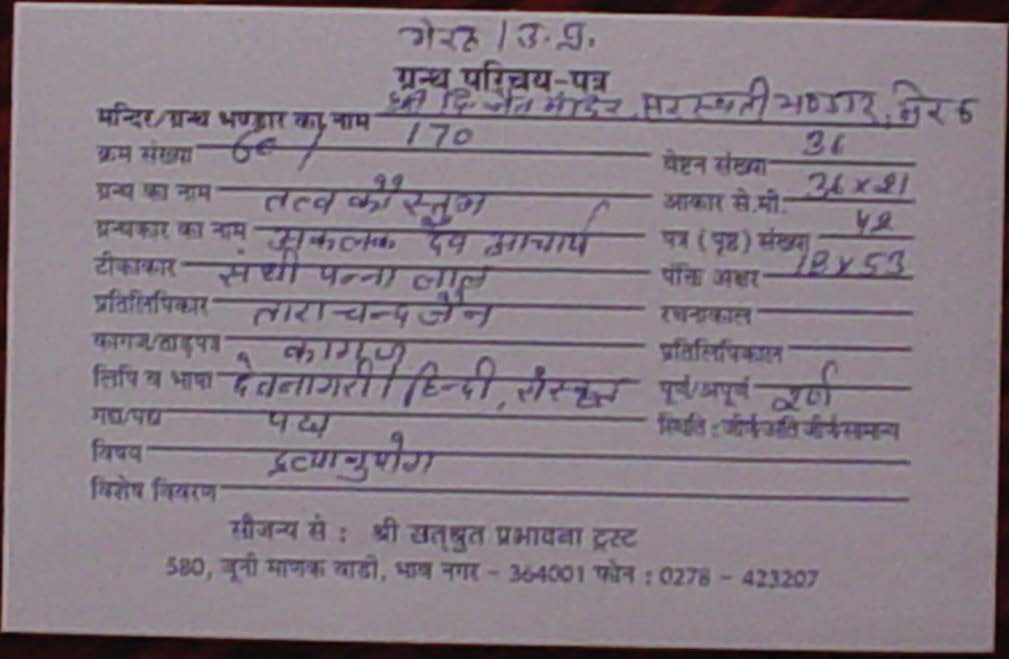 मेरठ / उ.प्र.
ग्रन्थ परिचय-पत्र
मन्दिर/ग्रन्थ भण्डार का नाम श्री दि. जैन मंदिर, सरस्वती भण्डार, मेरठ
क्रम संख्या 170 वेष्टन संख्या 36
ग्रन्थ का नाम तत्व कौस्तुभ आकार से.मी. 36 x 21
ग्रन्थकार का नाम अकलंक देव आचार्य पत्र (पृष्ठ) संख्या 42
टीकाकार संघी पन्ना लाल पंक्ति अक्षर 12 x 53
प्रतिलिपिकार ताराचन्द जैन रचनाकाल
कागज/ताड़पत्र कागज प्रतिलिपिकाल
लिपि व भाषा देवनागरी / हिन्दी, संस्कृत पूर्ण/अपूर्ण पूर्ण
गद्य/पद्य पद्य स्थिति : जीर्ण/अति जीर्ण/सामान्य
विषय द्रव्यानुयोग
विशेष विवरण
सौजन्य से : श्री सत्श्रुत प्रभावना ट्रस्ट
580, जूनी माणक वाडी, भाव नगर - 364001 फोन : 0278 - 423207